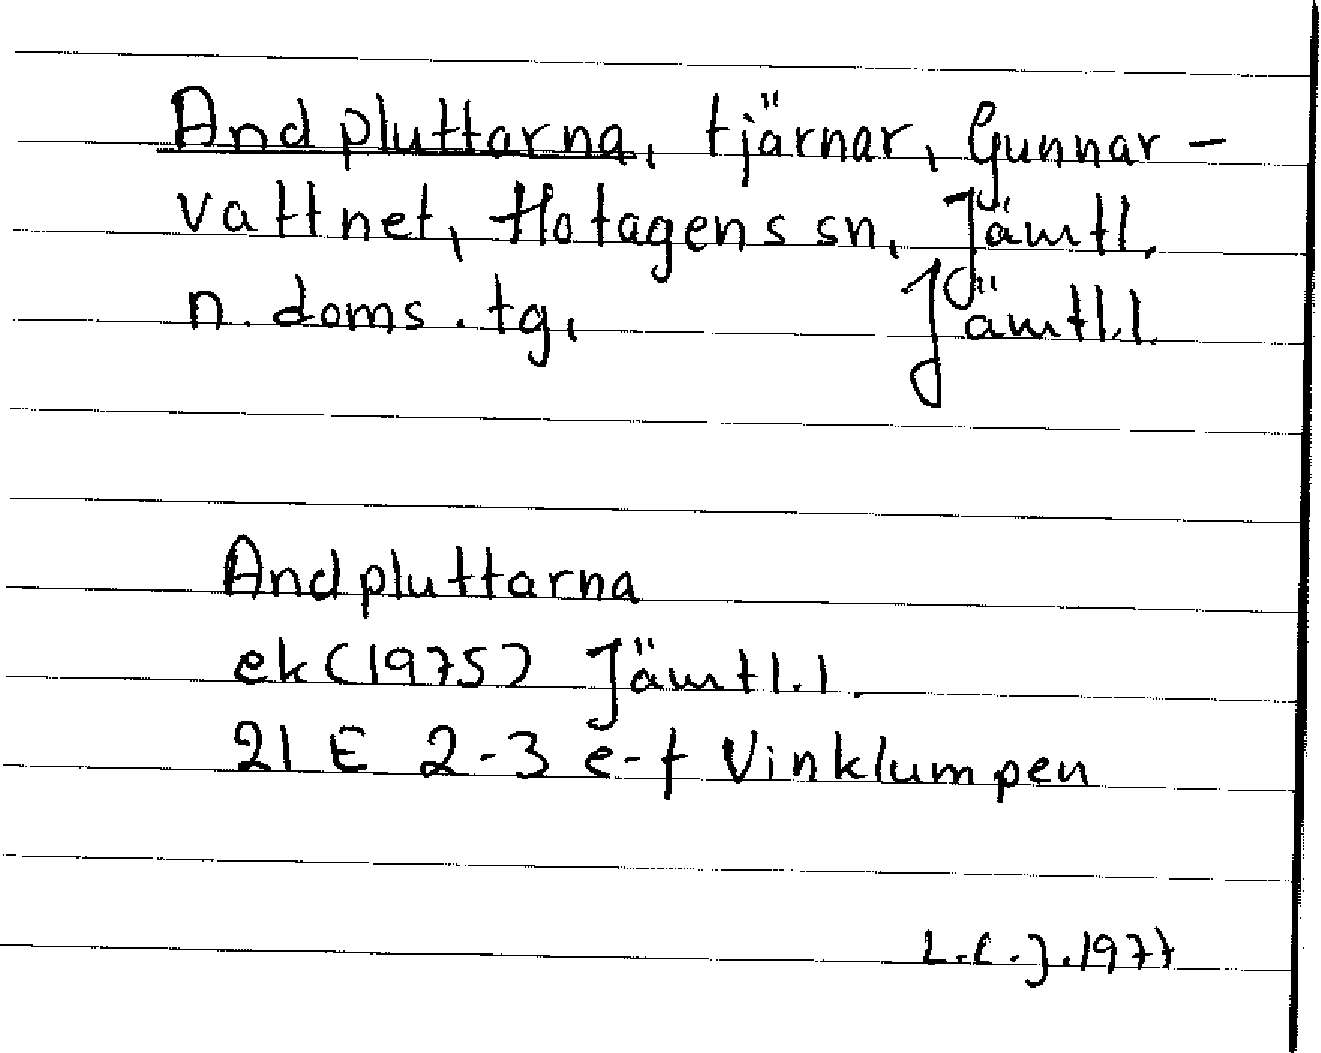 Andpluttarna, tjärnar, Gunnar-
vattnet, Hotagens sn, Jämtl.
n. doms. tg, Jämtl.l.
Andpluttarna
ek (1975) Jämtl.l.
21 E 2-3 e-f Vinklumpen
L.L.J. 1977